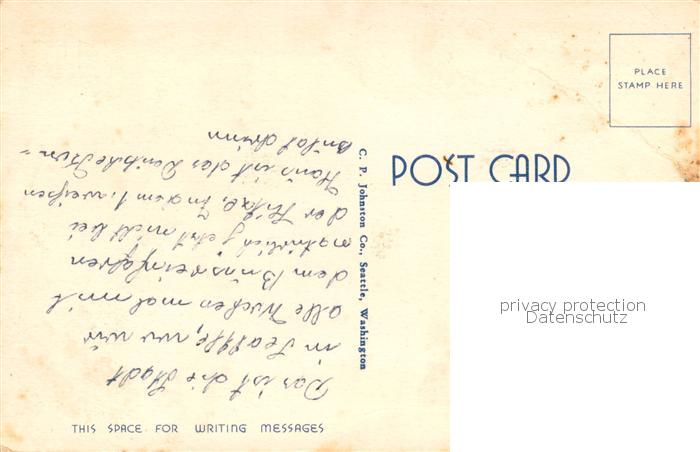 PLACE
STAMP HERE
POST CARD
C. P. Johnston Co., Seattle, Washington
Das ist die Stadt
in Seattle, wo wir
alle Wochen mal mit
dem Bus reinfahren
natürlich jetzt nicht bei
der Hitze, In dem 1. weißen
Haus ist das Deutsche Kon=
sulat drinn
THIS SPACE FOR WRITING MESSAGES
privacy protection
Datenschutz